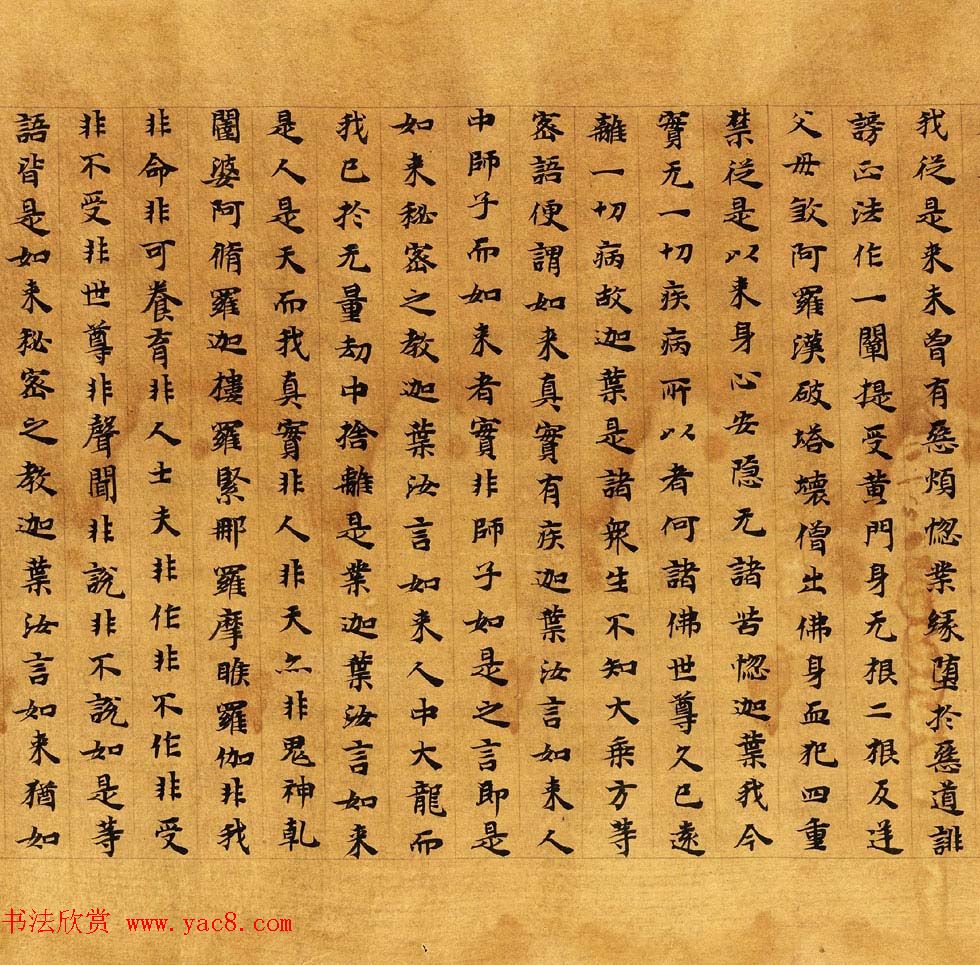 我從是来未曾有惡煩惚業緣墮於惡道誹
謗正法作一闡提受黄門身无根二根反逆
父母煞阿羅漢破塔壞僧出佛身血犯四重
禁從是以来身心安隐无諸苦惚迦葉我今
實无一切疾病所以者何諸佛世尊久已遠
離一切病故迦葉是諸衆生不知大乘方等
密語便謂如来真實有疾迦葉汝言如来人
中師子而如来者實非師子如是之言即是
如来秘密之教迦葉汝言如来人中大龍而
我已於无量劫中捨離是業迦葉汝言如来
是人是天而我真實非人非天亦非鬼神乹
闥婆阿脩羅迦樓羅緊那羅摩睺羅伽非我
非命非可養育非人士夫非作非不作非受
非不受非世尊非聲聞非說非不說如是等
語皆是如来秘密之教迦葉汝言如来猶如
书法欣赏 www.yac8.com